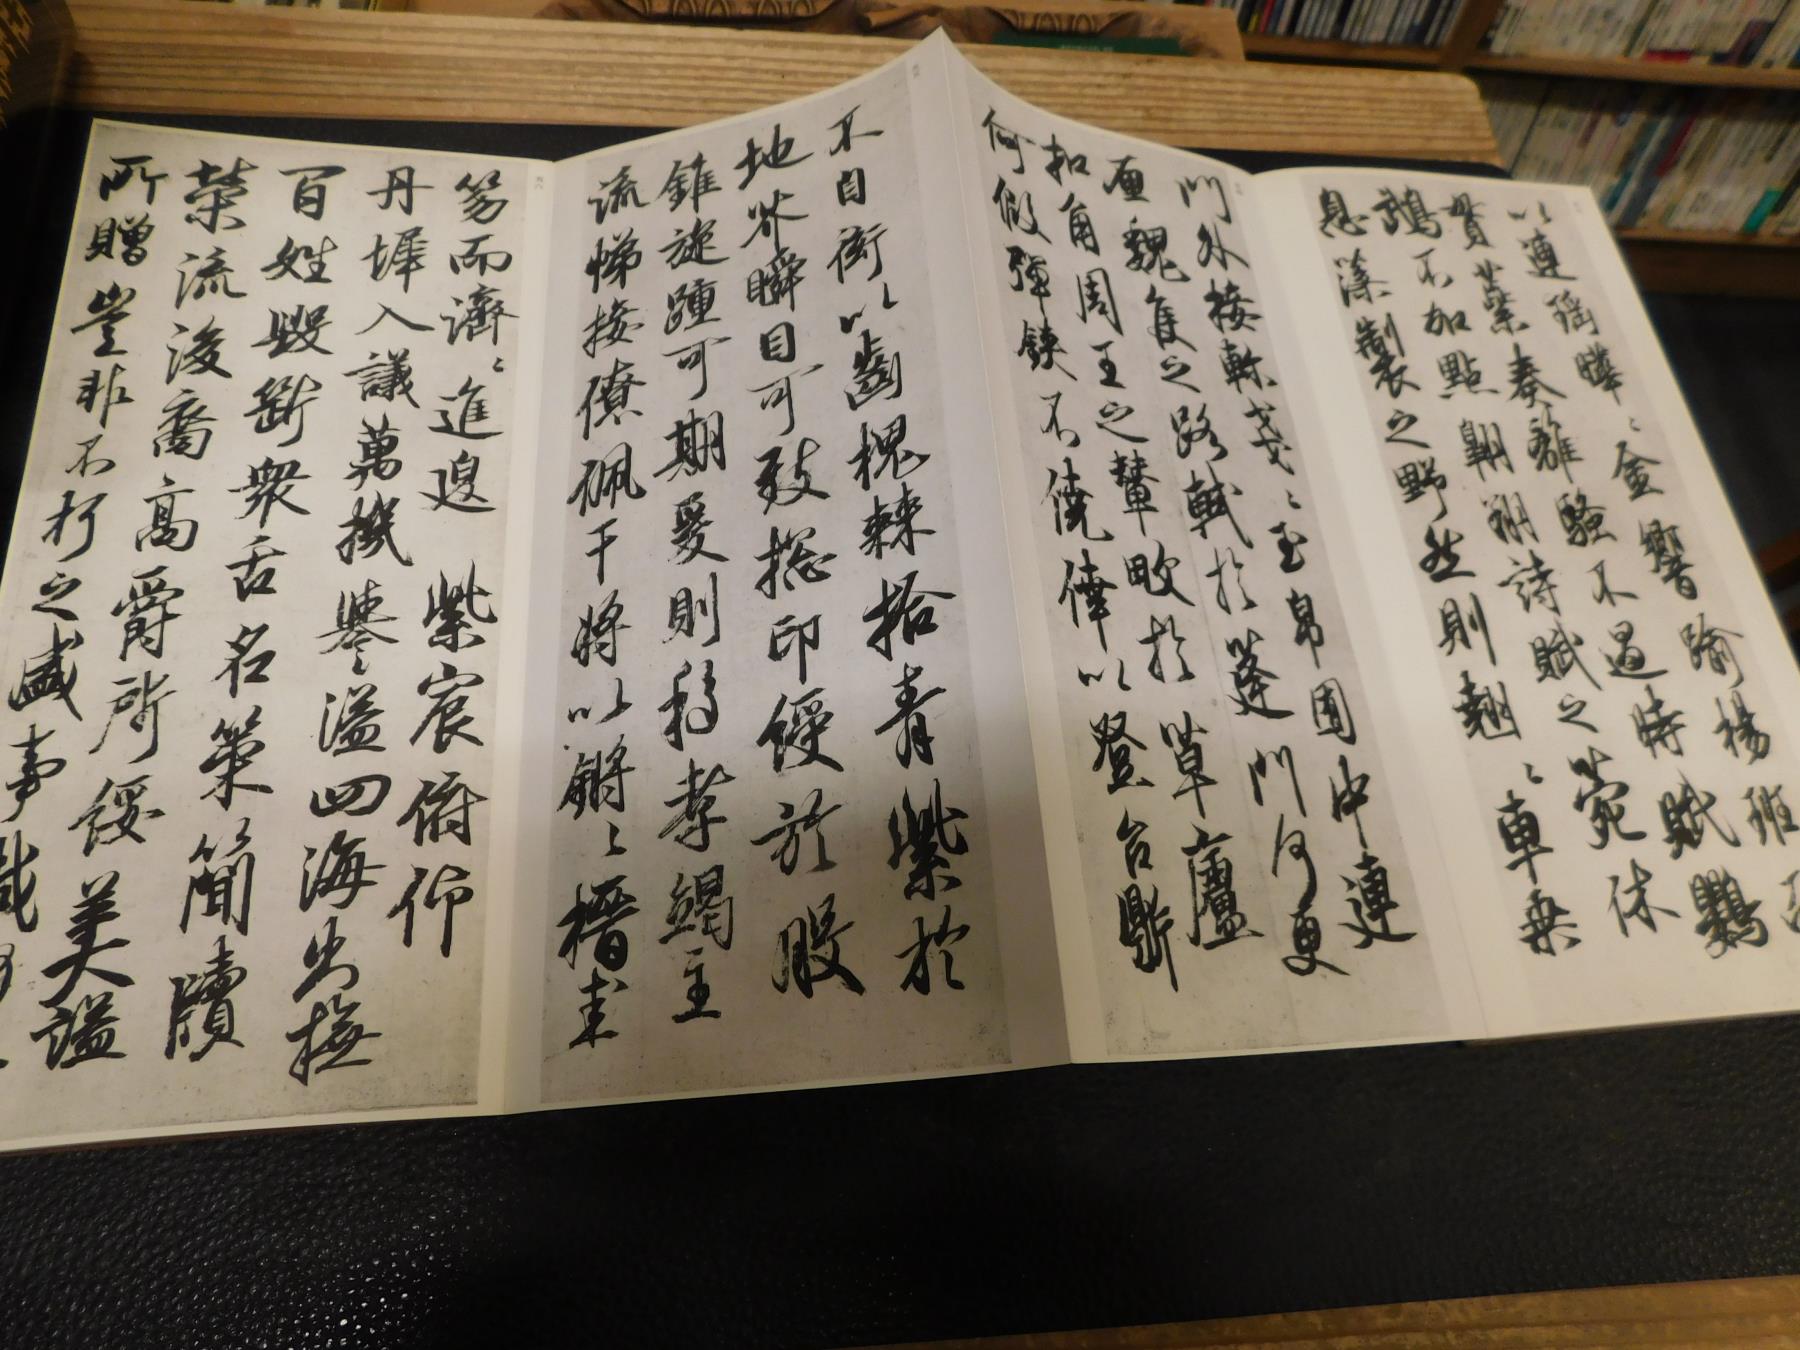 以連瑤曄〻金響踰楊班
賀蒸奏離騷不過時賦鸚
鵡不加點翱翔詩賦之菀休
息藻製之野然則翹〻車乗
門外接軫戔〻玉帛園中連
魏隻之路軾於蓬門何更
扣角周王之輦畋於草廬
何假彈鋏不僥倖以登台鼎
不自衒以齒槐棘拾青紫於
地芥瞬目可致揔印綬於股
錐旋踵可期爰則移孝竭主
流悌接僚佩干將以鏘〻搢
笏而濟〻進退紫宸俯仰
丹墀入議萬機譽溢四海出撫
百姓毀斷衆舌名策簡牘
榮流後裔高爵所綏美謚
所贈豈非不朽之盛事